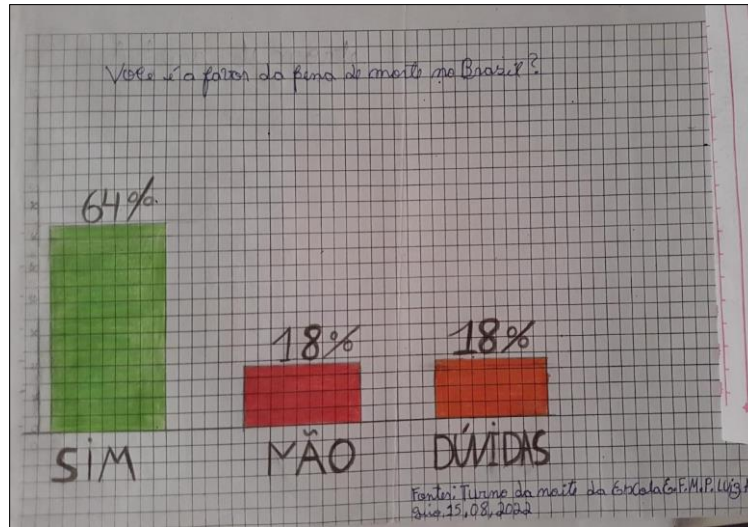 Você é a favor da pena de morte no Brasil?
64%
18%
18%
SIM
NÃO
DÚVIDAS
Fontes: Turno da noite da Escola E.F.M.P. Luiz
15,08,2022